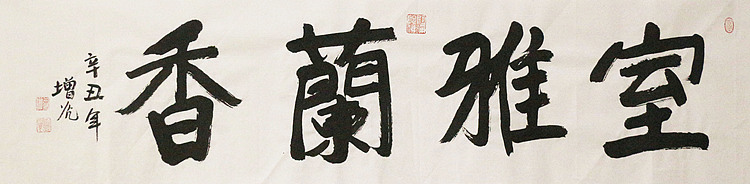 室雅蘭香
辛丑年
增光